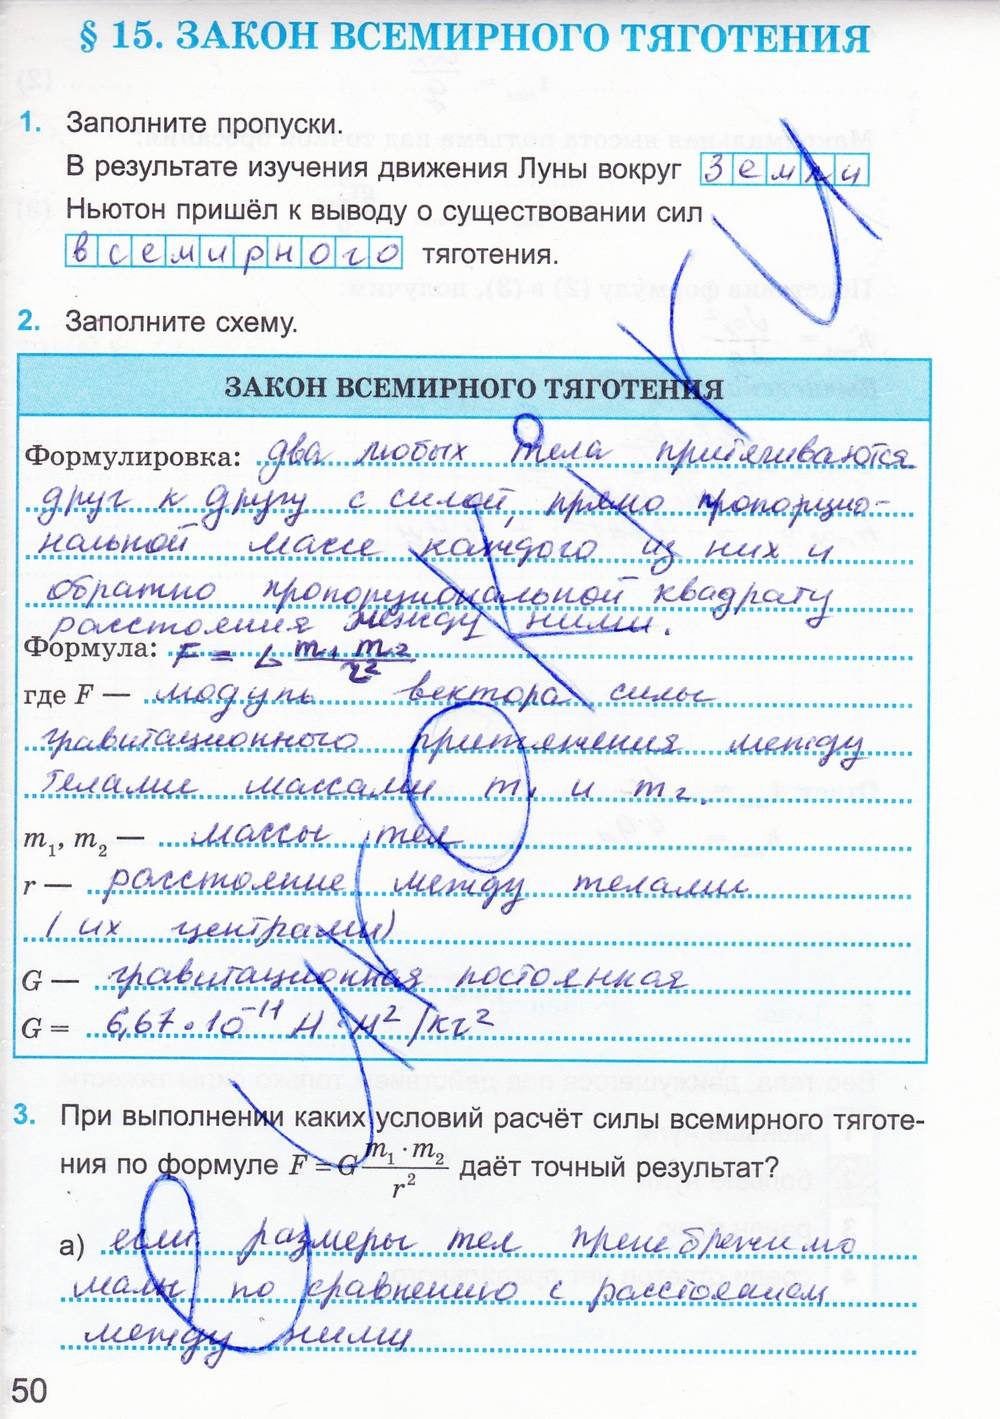 § 15. ЗАКОН ВСЕМИРНОГО ТЯГОТЕНИЯ
1. Заполните пропуски.
В результате изучения движения Луны вокруг Земли
Ньютон пришёл к выводу о существовании сил
всемирного тяготения.
2. Заполните схему.
ЗАКОН ВСЕМИРНОГО ТЯГОТЕНИЯ
Формулировка: два любых тела притягиваются
друг к другу с силой, прямо пропорцио-
нальной массе каждого из них и
обратно пропорциональной квадрату
расстояния между ними.
Формула: F = G m₁ m₂ / r²
где F — модуль вектора силы
гравитационного притяжения между
телами массами m₁ и m₂.
m₁, m₂ — массы тел
r — расстояние между телами
(их центрами)
G — гравитационная постоянная
G = 6,67 · 10⁻¹¹ Н · м² / кг²
3. При выполнении каких условий расчёт силы всемирного тяготе-
ния по формуле F = G m₁ · m₂ / r² даёт точный результат?
а) если размеры тел пренебрежимо
малы по сравнению с расстоянием
между ними
50